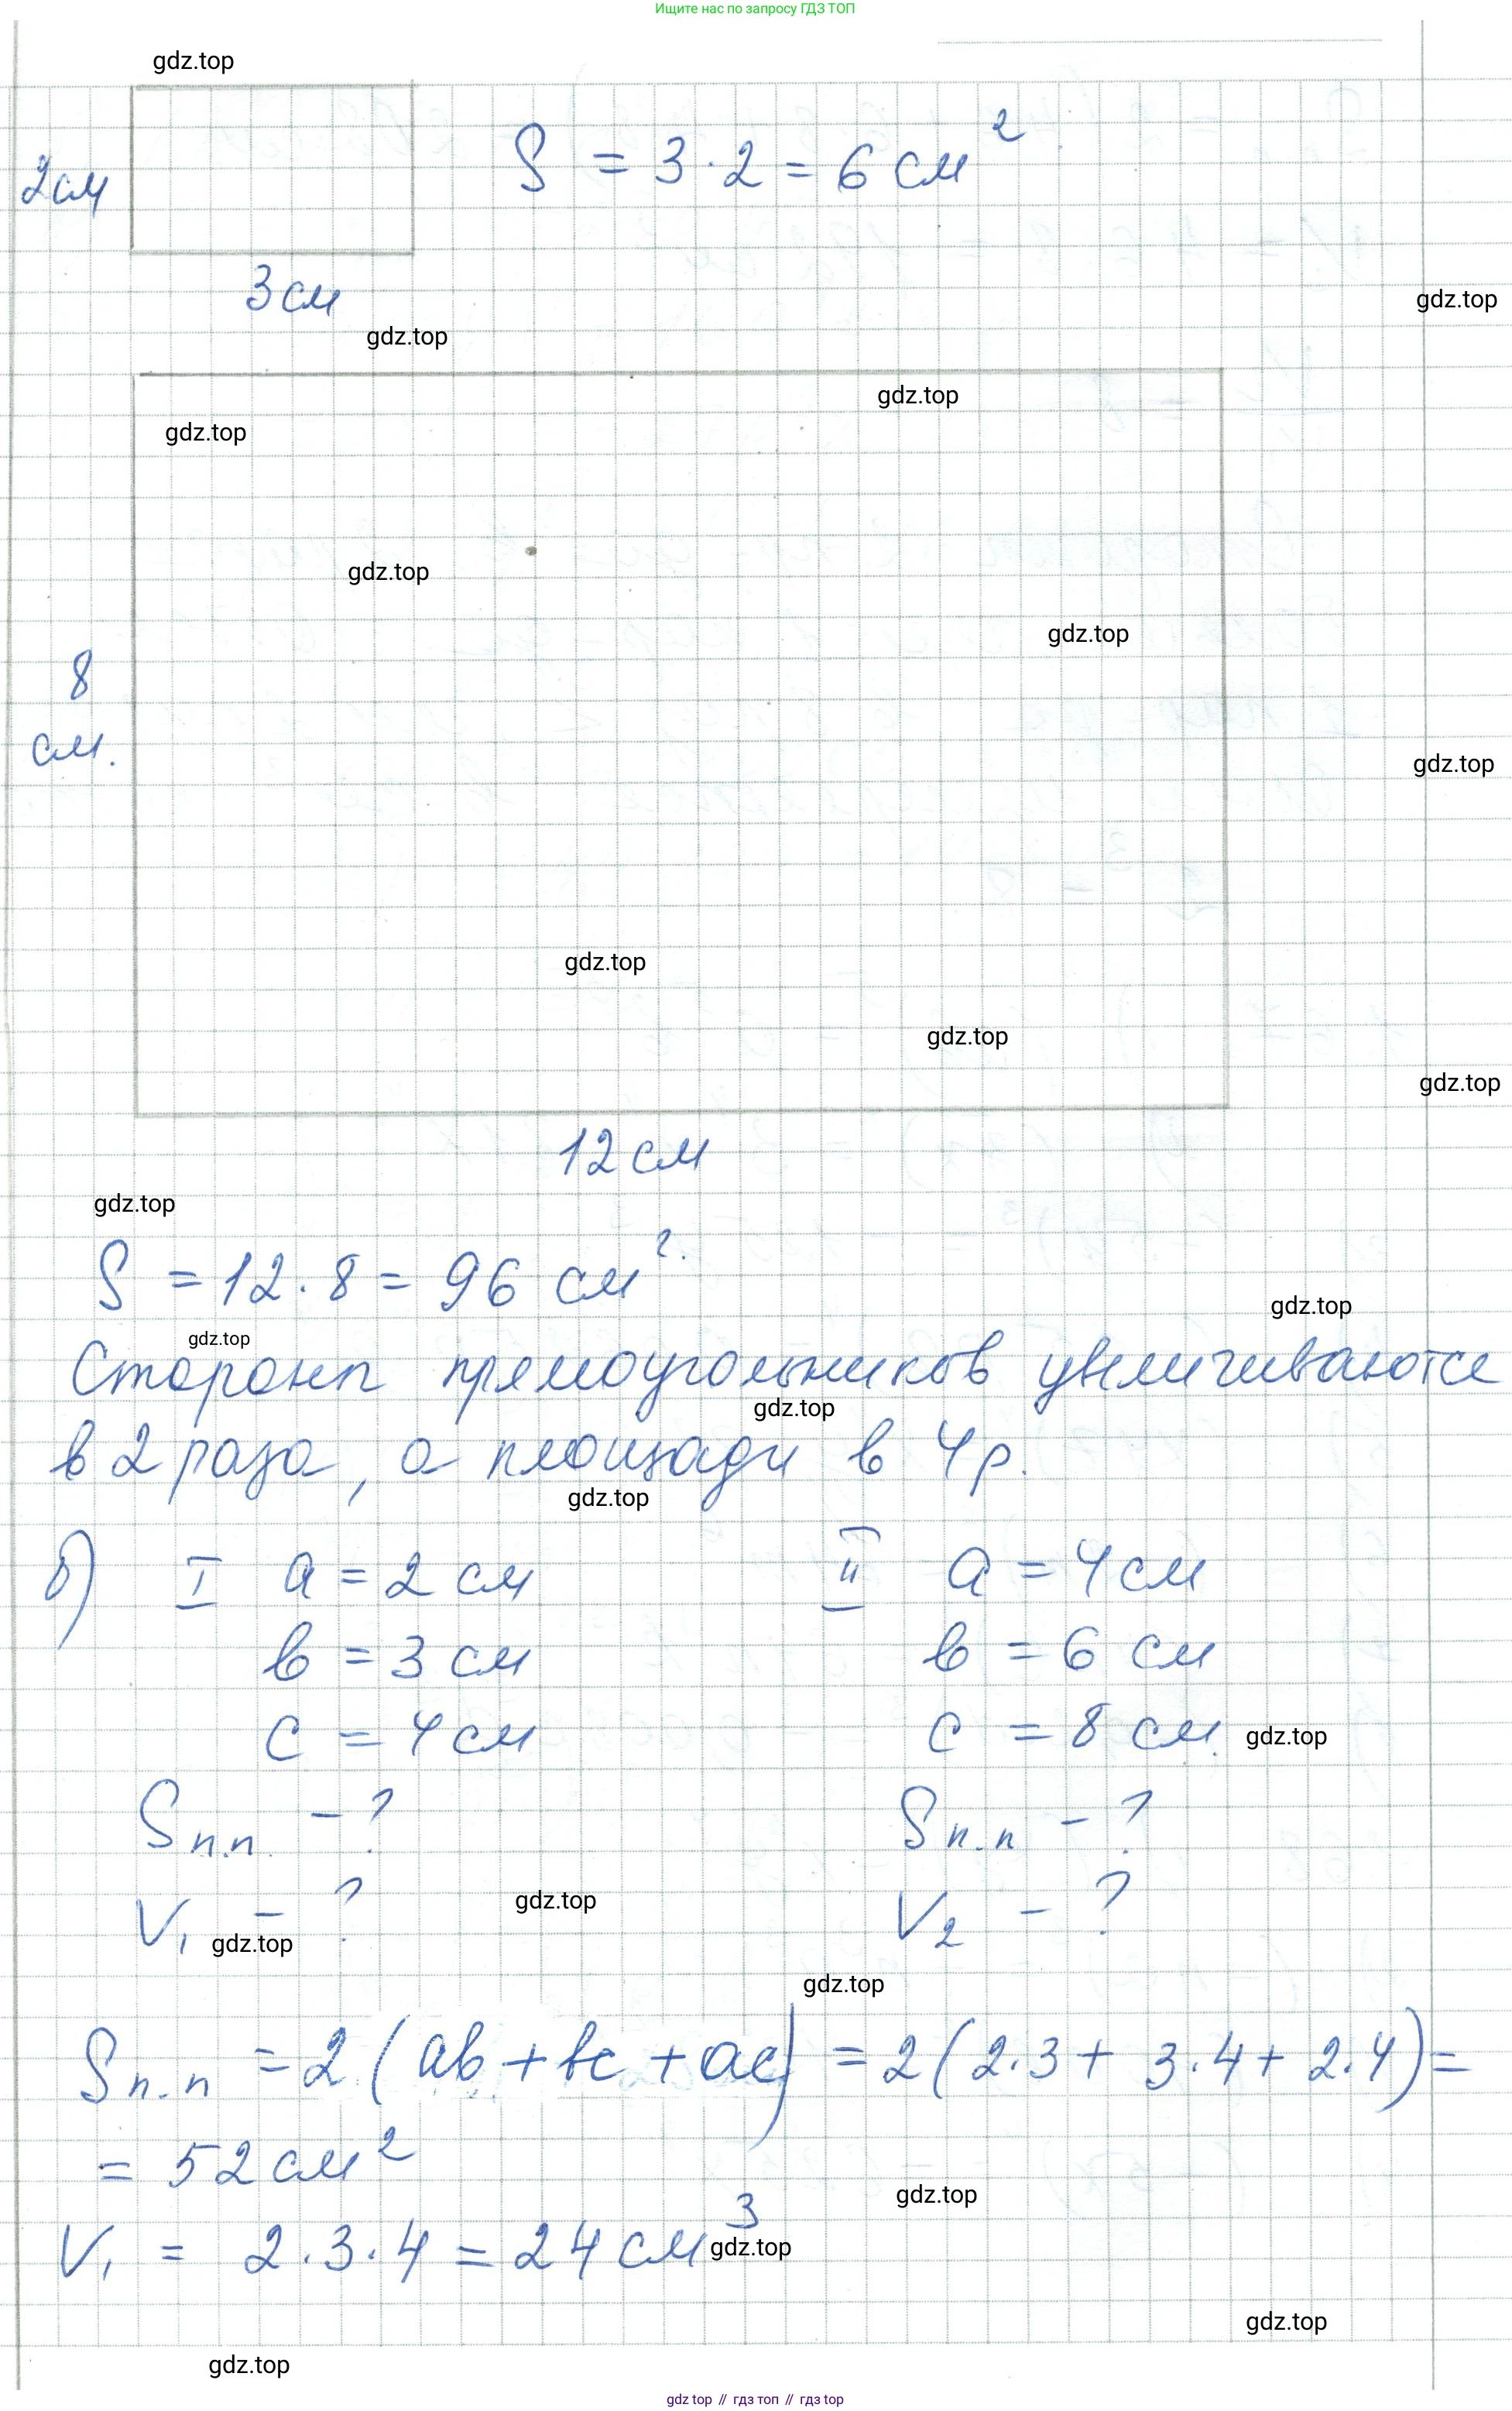 Ищите нас по запросу ГДЗ ТОП
gdz.top
2см
S = 3 · 2 = 6 см²
3 см
gdz.top
gdz.top
gdz.top
gdz.top
gdz.top
gdz.top
8
см.
gdz.top
gdz.top
gdz.top
gdz.top
12 см
gdz.top
S = 12 · 8 = 96 см².
gdz.top
gdz.top
Стороны прямоугольников увеличиваются
gdz.top
в 2 раза, а площади в 4 р.
gdz.top
б) I a = 2 см II a = 4 см
в = 3 см в = 6 см
c = 4 см c = 8 см. gdz.top
Sп.п. - ? Sп.п - ?
gdz.top
V₁ - ? V₂ - ?
gdz.top
gdz.top
Sп.п = 2 (ab + bc + ac) = 2 (2·3 + 3·4 + 2·4) =
= 52 см²
gdz.top
V₁ = 2 · 3 · 4 = 24 см³
gdz.top
gdz.top
gdz.top
gdz top // гдз топ // гдз top